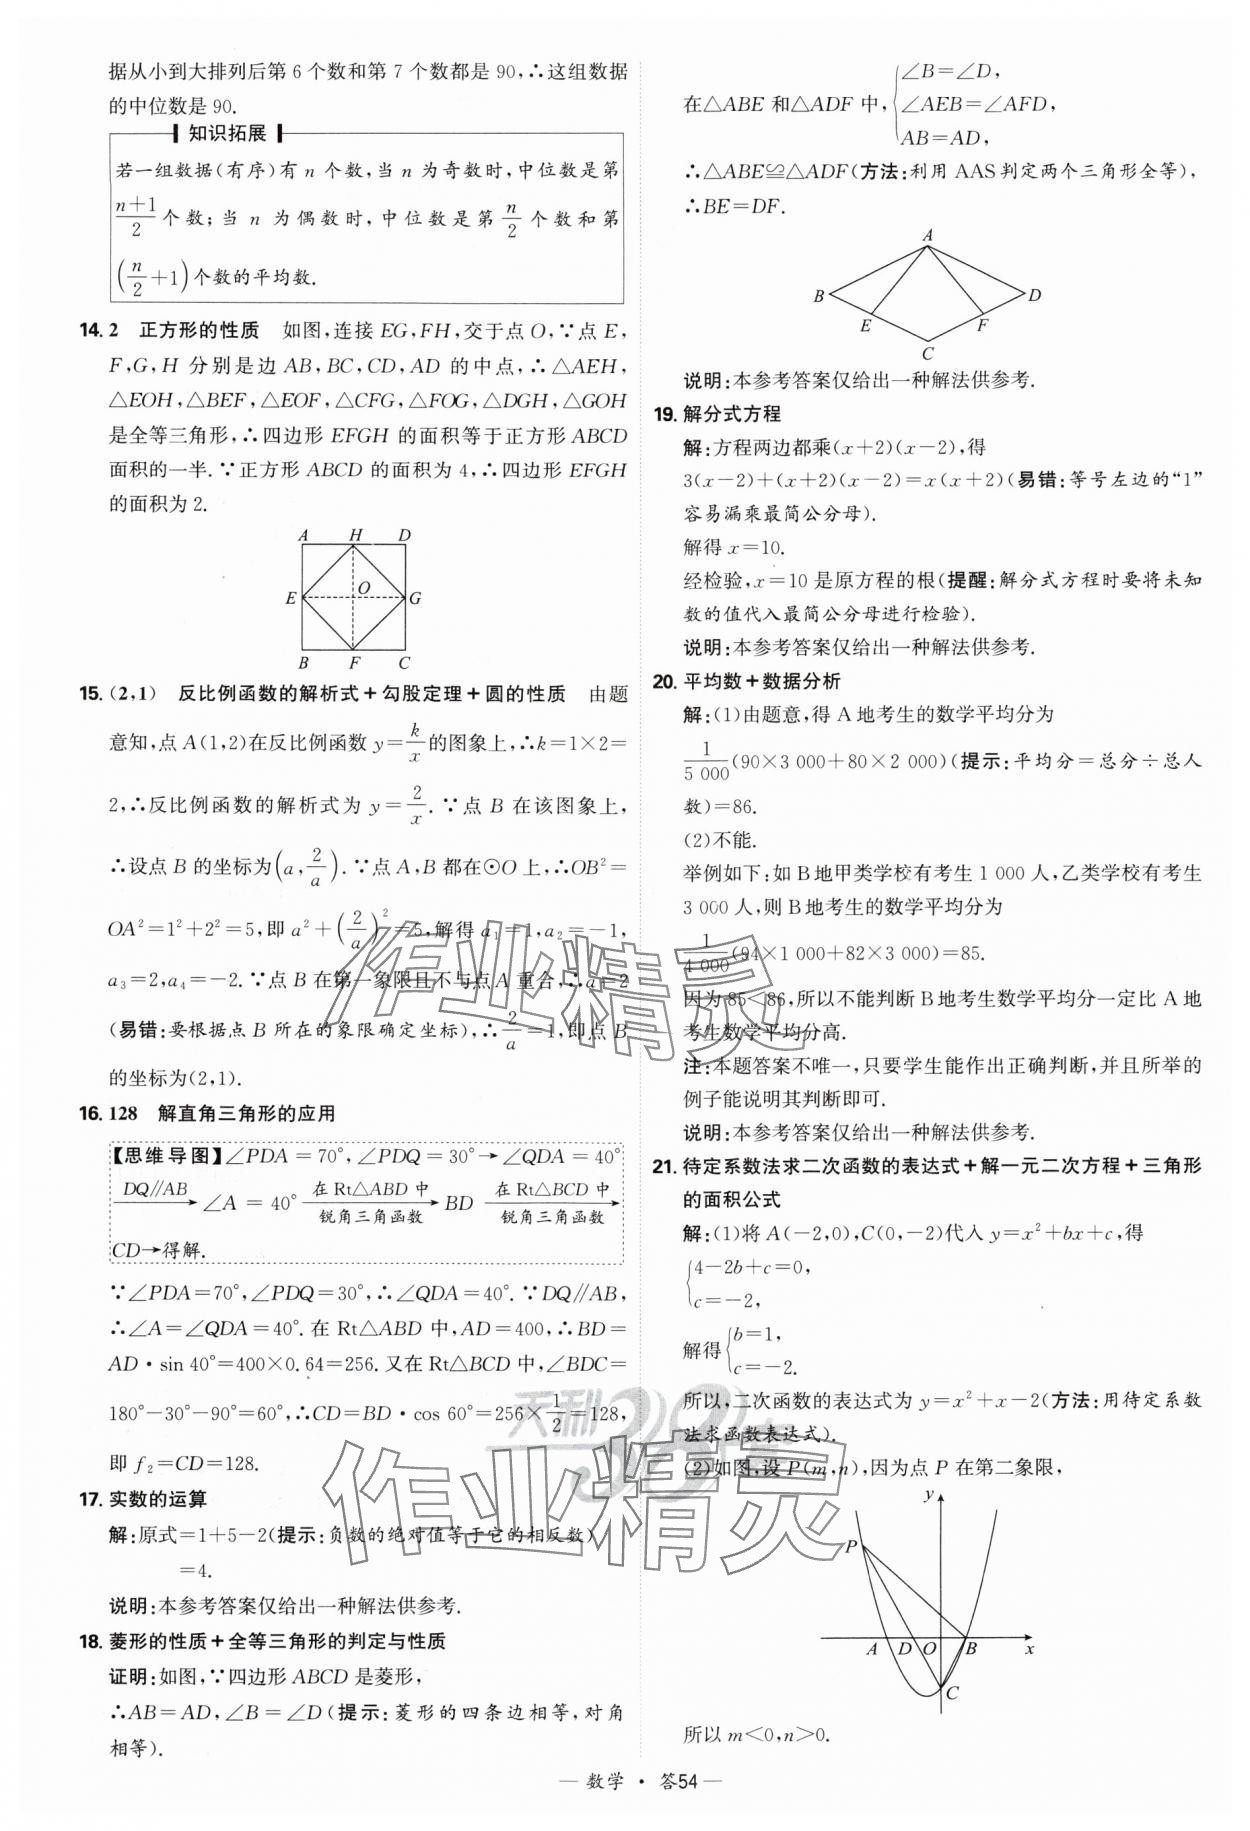 据从小到大排列后第 6 个数和第 7 个数都是 90,∴这组数据
的中位数是 90.
知识拓展
若一组数据(有序)有 n 个数,当 n 为奇数时,中位数是第
(n+1)/2 个数;当 n 为偶数时,中位数是第 n/2 个数和第
(n/2+1)个数的平均数.
14. 2 正方形的性质 如图,连接 EG,FH,交于点 O,∵点 E,
F,G,H 分别是边 AB,BC,CD,AD 的中点,∴△AEH,
△EOH,△BEF,△EOF,△CFG,△FOG,△DGH,△GOH
是全等三角形,∴四边形 EFGH 的面积等于正方形 ABCD
面积的一半.∵正方形 ABCD 的面积为 4,∴四边形 EFGH
的面积为 2.
A H D
E O G
B F C
15. (2,1) 反比例函数的解析式+勾股定理+圆的性质 由题
意知,点 A(1,2)在反比例函数 y=k/x 的图象上,∴k=1×2=
2,∴反比例函数的解析式为 y=2/x.∵点 B 在该图象上,
∴设点 B 的坐标为(a,2/a).∵点 A,B 都在⊙O 上,∴OB²=
OA²=1²+2²=5,即 a²+(2/a)²=5,解得 a₁=1,a₂=-1,
a₃=2,a₄=-2.∵点 B 在第一象限且不与点 A 重合,∴a=2
(易错:要根据点 B 所在的象限确定坐标),∴2/a=1,即点 B
的坐标为(2,1).
16. 128 解直角三角形的应用
【思维导图】∠PDA=70°,∠PDQ=30°→∠QDA=40°
DQ∥AB ∠A=40° 在 Rt△ABD 中 锐角三角函数 BD 在 Rt△BCD 中 锐角三角函数
CD→得解.
∵∠PDA=70°,∠PDQ=30°,∴∠QDA=40°.∵DQ∥AB,
∴∠A=∠QDA=40°.在 Rt△ABD 中,AD=400,∴BD=
AD·sin 40°=400×0.64=256.又在 Rt△BCD 中,∠BDC=
180°-30°-90°=60°,∴CD=BD·cos 60°=256×1/2=128,
即 f₂=CD=128.
17. 实数的运算
解:原式=1+5-2(提示:负数的绝对值等于它的相反数)
=4.
说明:本参考答案仅给出一种解法供参考.
18. 菱形的性质+全等三角形的判定与性质
证明:如图,∵四边形 ABCD 是菱形,
∴AB=AD,∠B=∠D(提示:菱形的四条边相等,对角
相等).
在△ABE 和△ADF 中,{∠B=∠D,
∠AEB=∠AFD,
AB=AD,
∴△ABE≌△ADF(方法:利用 AAS 判定两个三角形全等),
∴BE=DF.
A
B D
E F
C
说明:本参考答案仅给出一种解法供参考.
19. 解分式方程
解:方程两边都乘(x+2)(x-2),得
3(x-2)+(x+2)(x-2)=x(x+2)(易错:等号左边的“1”
容易漏乘最简公分母).
解得 x=10.
经检验,x=10 是原方程的根(提醒:解分式方程时要将未知
数的值代入最简公分母进行检验).
说明:本参考答案仅给出一种解法供参考.
20. 平均数+数据分析
解:(1)由题意,得 A 地考生的数学平均分为
1/5 000(90×3 000+80×2 000)(提示:平均分=总分÷总人
数)=86.
(2)不能.
举例如下:如 B 地甲类学校有考生 1 000 人,乙类学校有考生
3 000 人,则 B 地考生的数学平均分为
1/4 000(94×1 000+82×3 000)=85.
因为 85<86,所以不能判断 B 地考生数学平均分一定比 A 地
考生数学平均分高.
注:本题答案不唯一,只要学生能作出正确判断,并且所举的
例子能说明其判断即可.
说明:本参考答案仅给出一种解法供参考.
21. 待定系数法求二次函数的表达式+解一元二次方程+三角形
的面积公式
解:(1)将 A(-2,0),C(0,-2)代入 y=x²+bx+c,得
{4-2b+c=0,
c=-2,
解得{b=1,
c=-2.
所以,二次函数的表达式为 y=x²+x-2(方法:用待定系数
法求函数表达式).
(2)如图,设 P(m,n),因为点 P 在第二象限,
y
P
A D O B x
C
所以 m<0,n>0.
作业精灵
天利38套
作业精灵
— 数学 · 答54 —